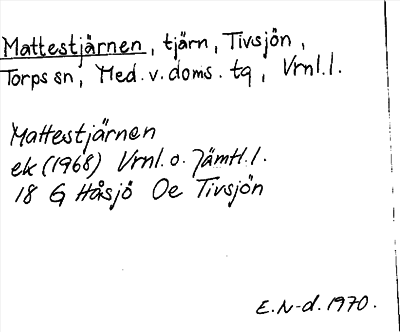 Mattestjärnen, tjärn, Tivsjön,
Torps sn, Med. v. doms. tg, Vrnl. l.
Mattestjärnen
ek (1968) Vrnl. o. Jämtl. l.
18 G Håsjö Oe Tivsjön
E. N-d. 1970.